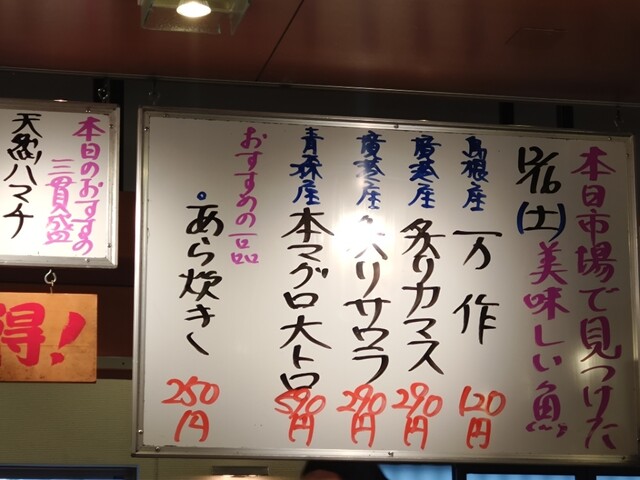 本日市場で見つけた
12/16(土)美味しい魚
島根産 万作 120円
炙りカマス 290円
炙りサワラ 290円
青森産 本マグロ大トロ 590円
おすすめの一品
。あら炊き 250円
本日のおすすめ
三貫盛
ハマチ
得!